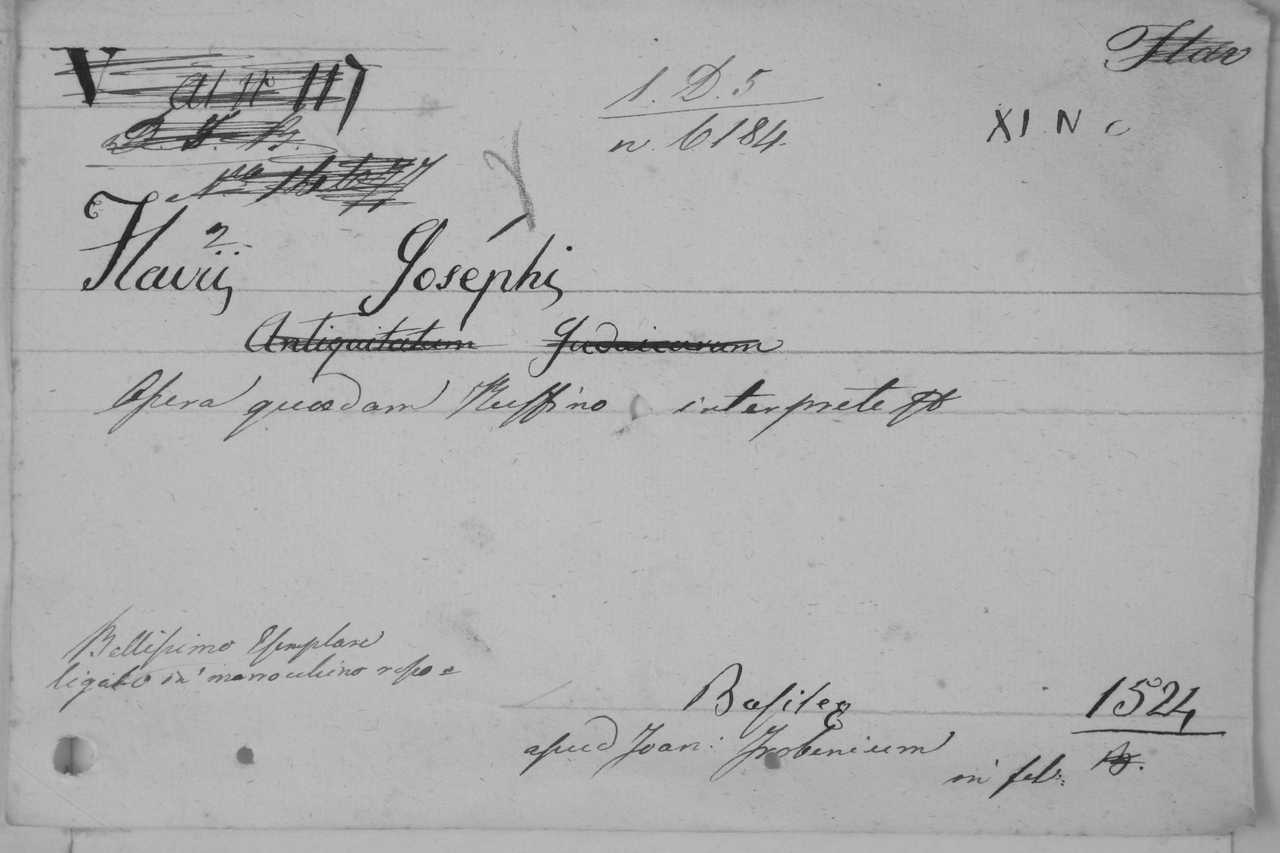 Flav
V
117
1. D. 5
n 6184.
XI N C
2
Flavii Josephi
Antiquitatum Judaicarum
Opera quædam Ruffino interprete
Bellissimo Esemplare
ligato in marrocchino rosso e
Basileę 1524
apud Joan: Frobenium
in fol: